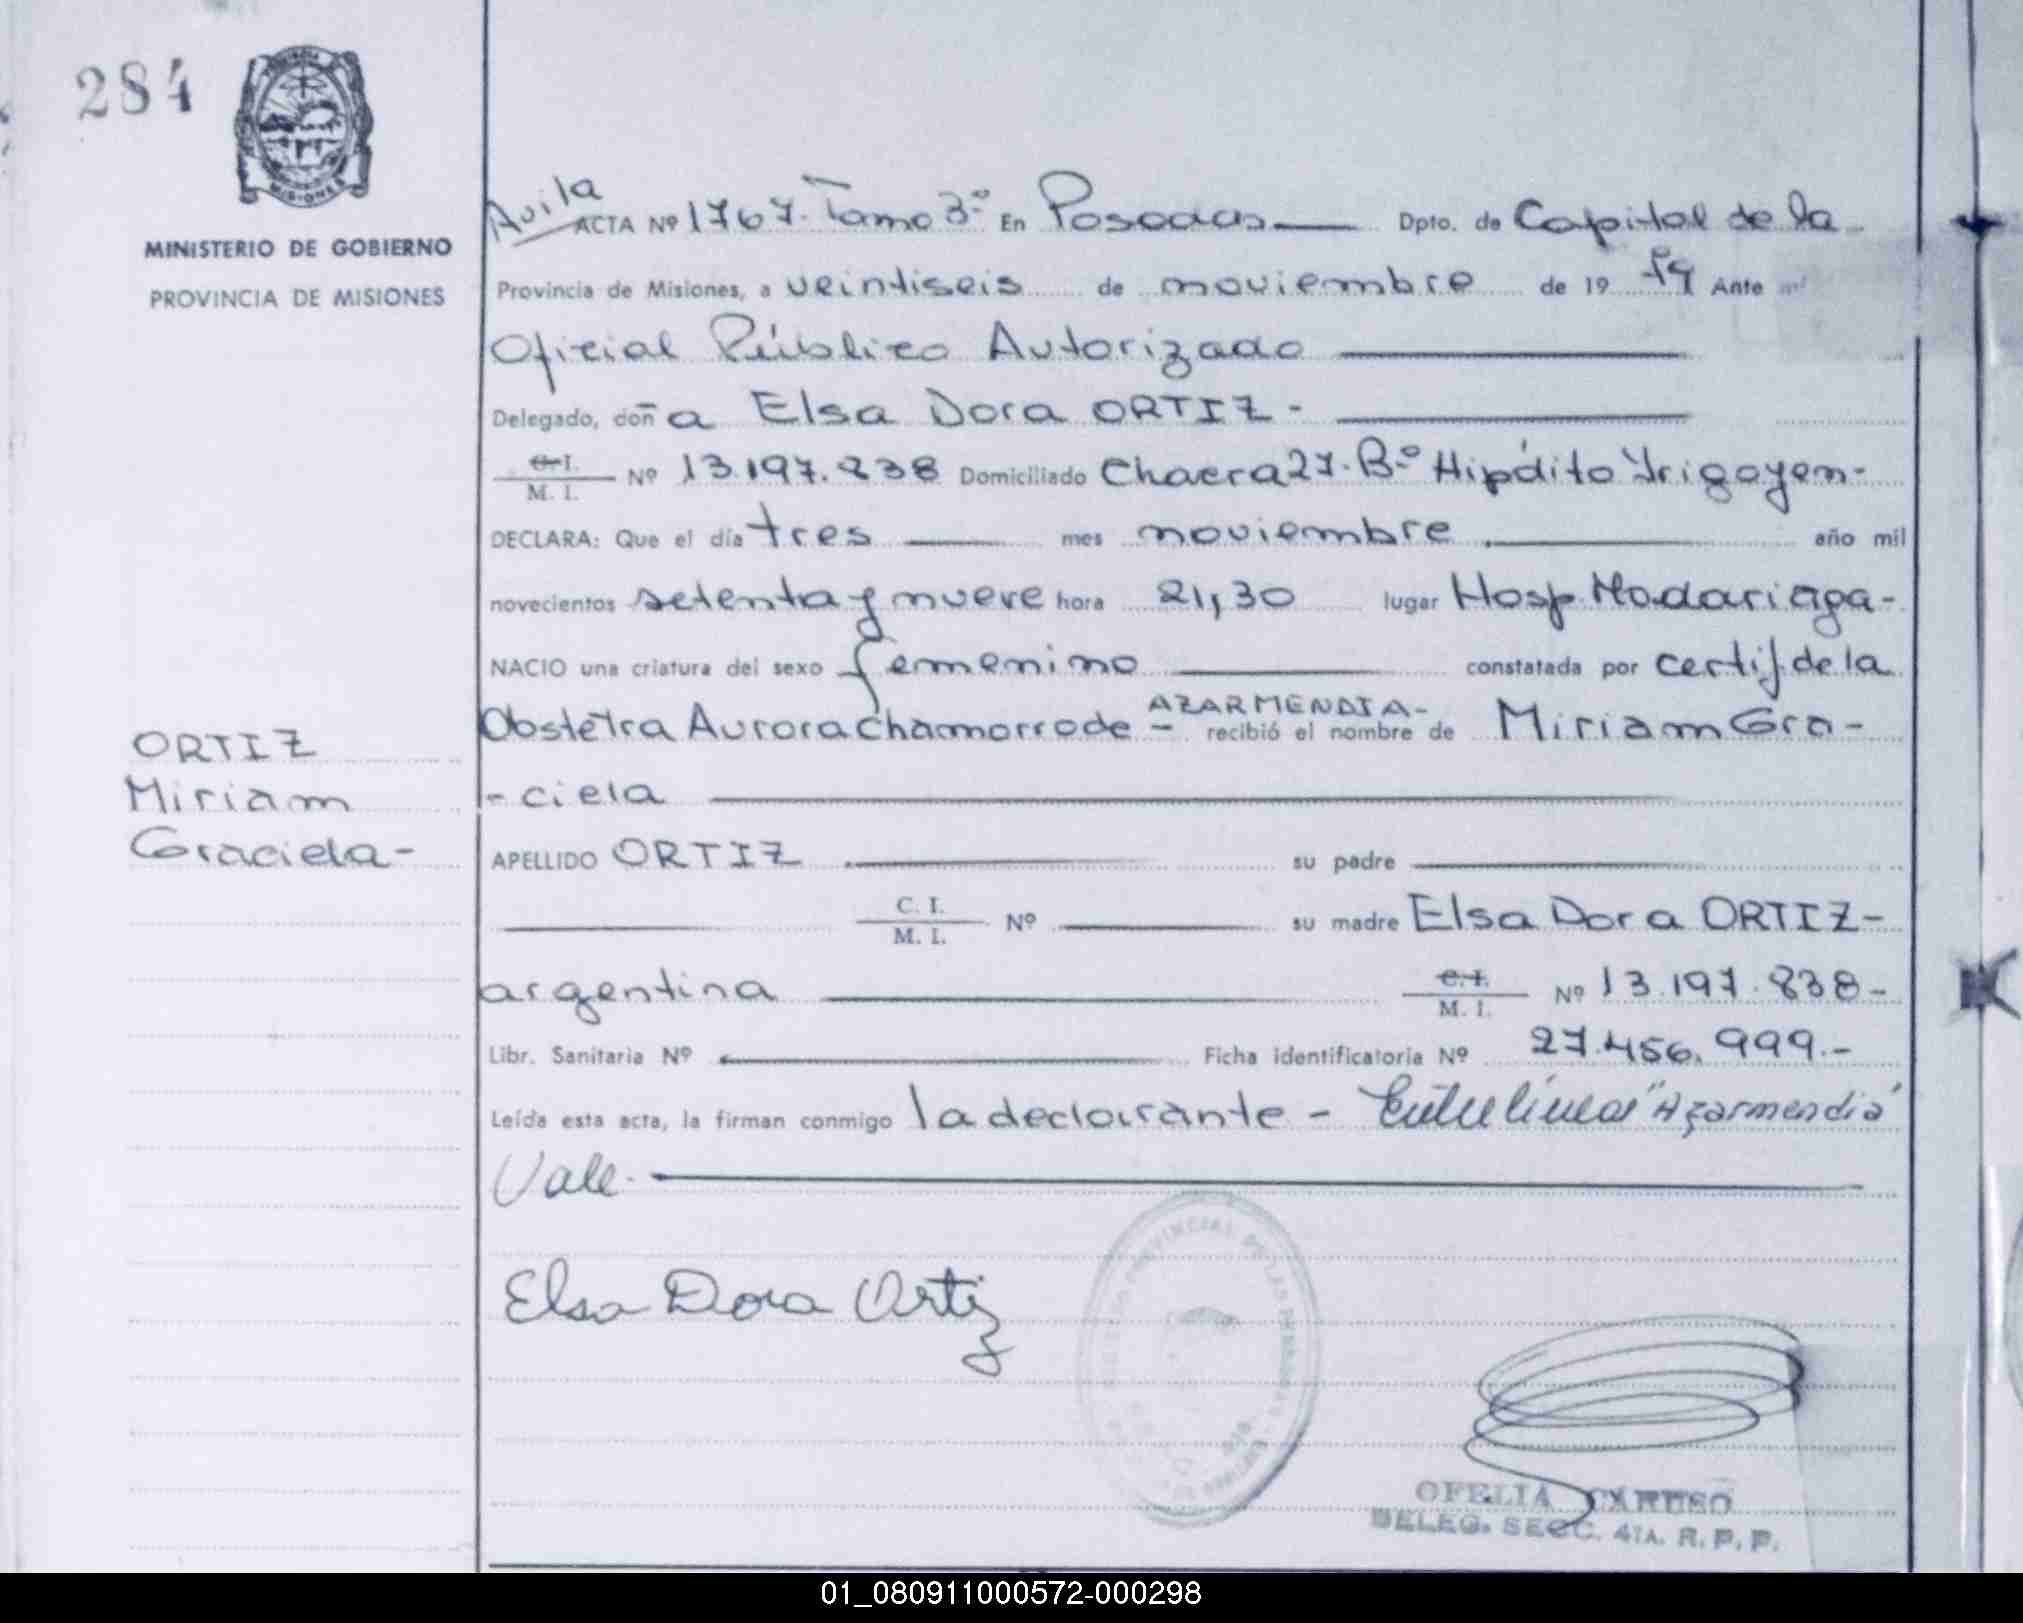 284
MISIONES
MINISTERIO DE GOBIERNO
PROVINCIA DE MISIONES
Avila
ACTA Nº 1767. Tomo 3º En Posadas Dpto. de Capital de la
Provincia de Misiones, a veintiseis de noviembre de 19 79 Ante mí
Oficial Público Autorizado
Delegado, doña Elsa Dora ORTIZ -
C. I.
M. I. Nº 13.197.838 Domiciliado Chacra 27. Bº Hipólito Yrigoyen-
DECLARA: Que el día tres mes noviembre año mil
novecientos setenta y nueve hora 21,30 lugar Hosp Madariaga-
NACIO una criatura del sexo femenino constatada por certif. de la
AZARMENDIA-
Obstétra Aurora Chamorro de - recibió el nombre de Miriam Gra-
- ciela
ORTIZ
Miriam
Graciela-
APELLIDO ORTIZ su padre
C. I.
M. I. Nº su madre Elsa Dora ORTIZ-
argentina C. I.
M. I. Nº 13.197.838-
Libr. Sanitaria Nº Ficha identificatoria Nº 27.456.999.-
Leída esta acta, la firman conmigo la declarante - Entre líneas "Azarmendia"
Vale.
Elsa Dora Ortiz
PROVINCIAL DE LAS PERSONAS
OFELIA CARUSO
DELEG. SECC. 4TA. R. P. P.
01_080911000572-000298